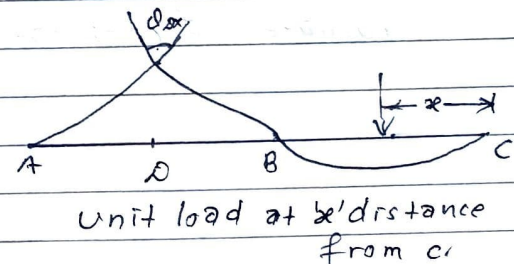 x
A
D
B
C
unit load at 'x' distance
from c.